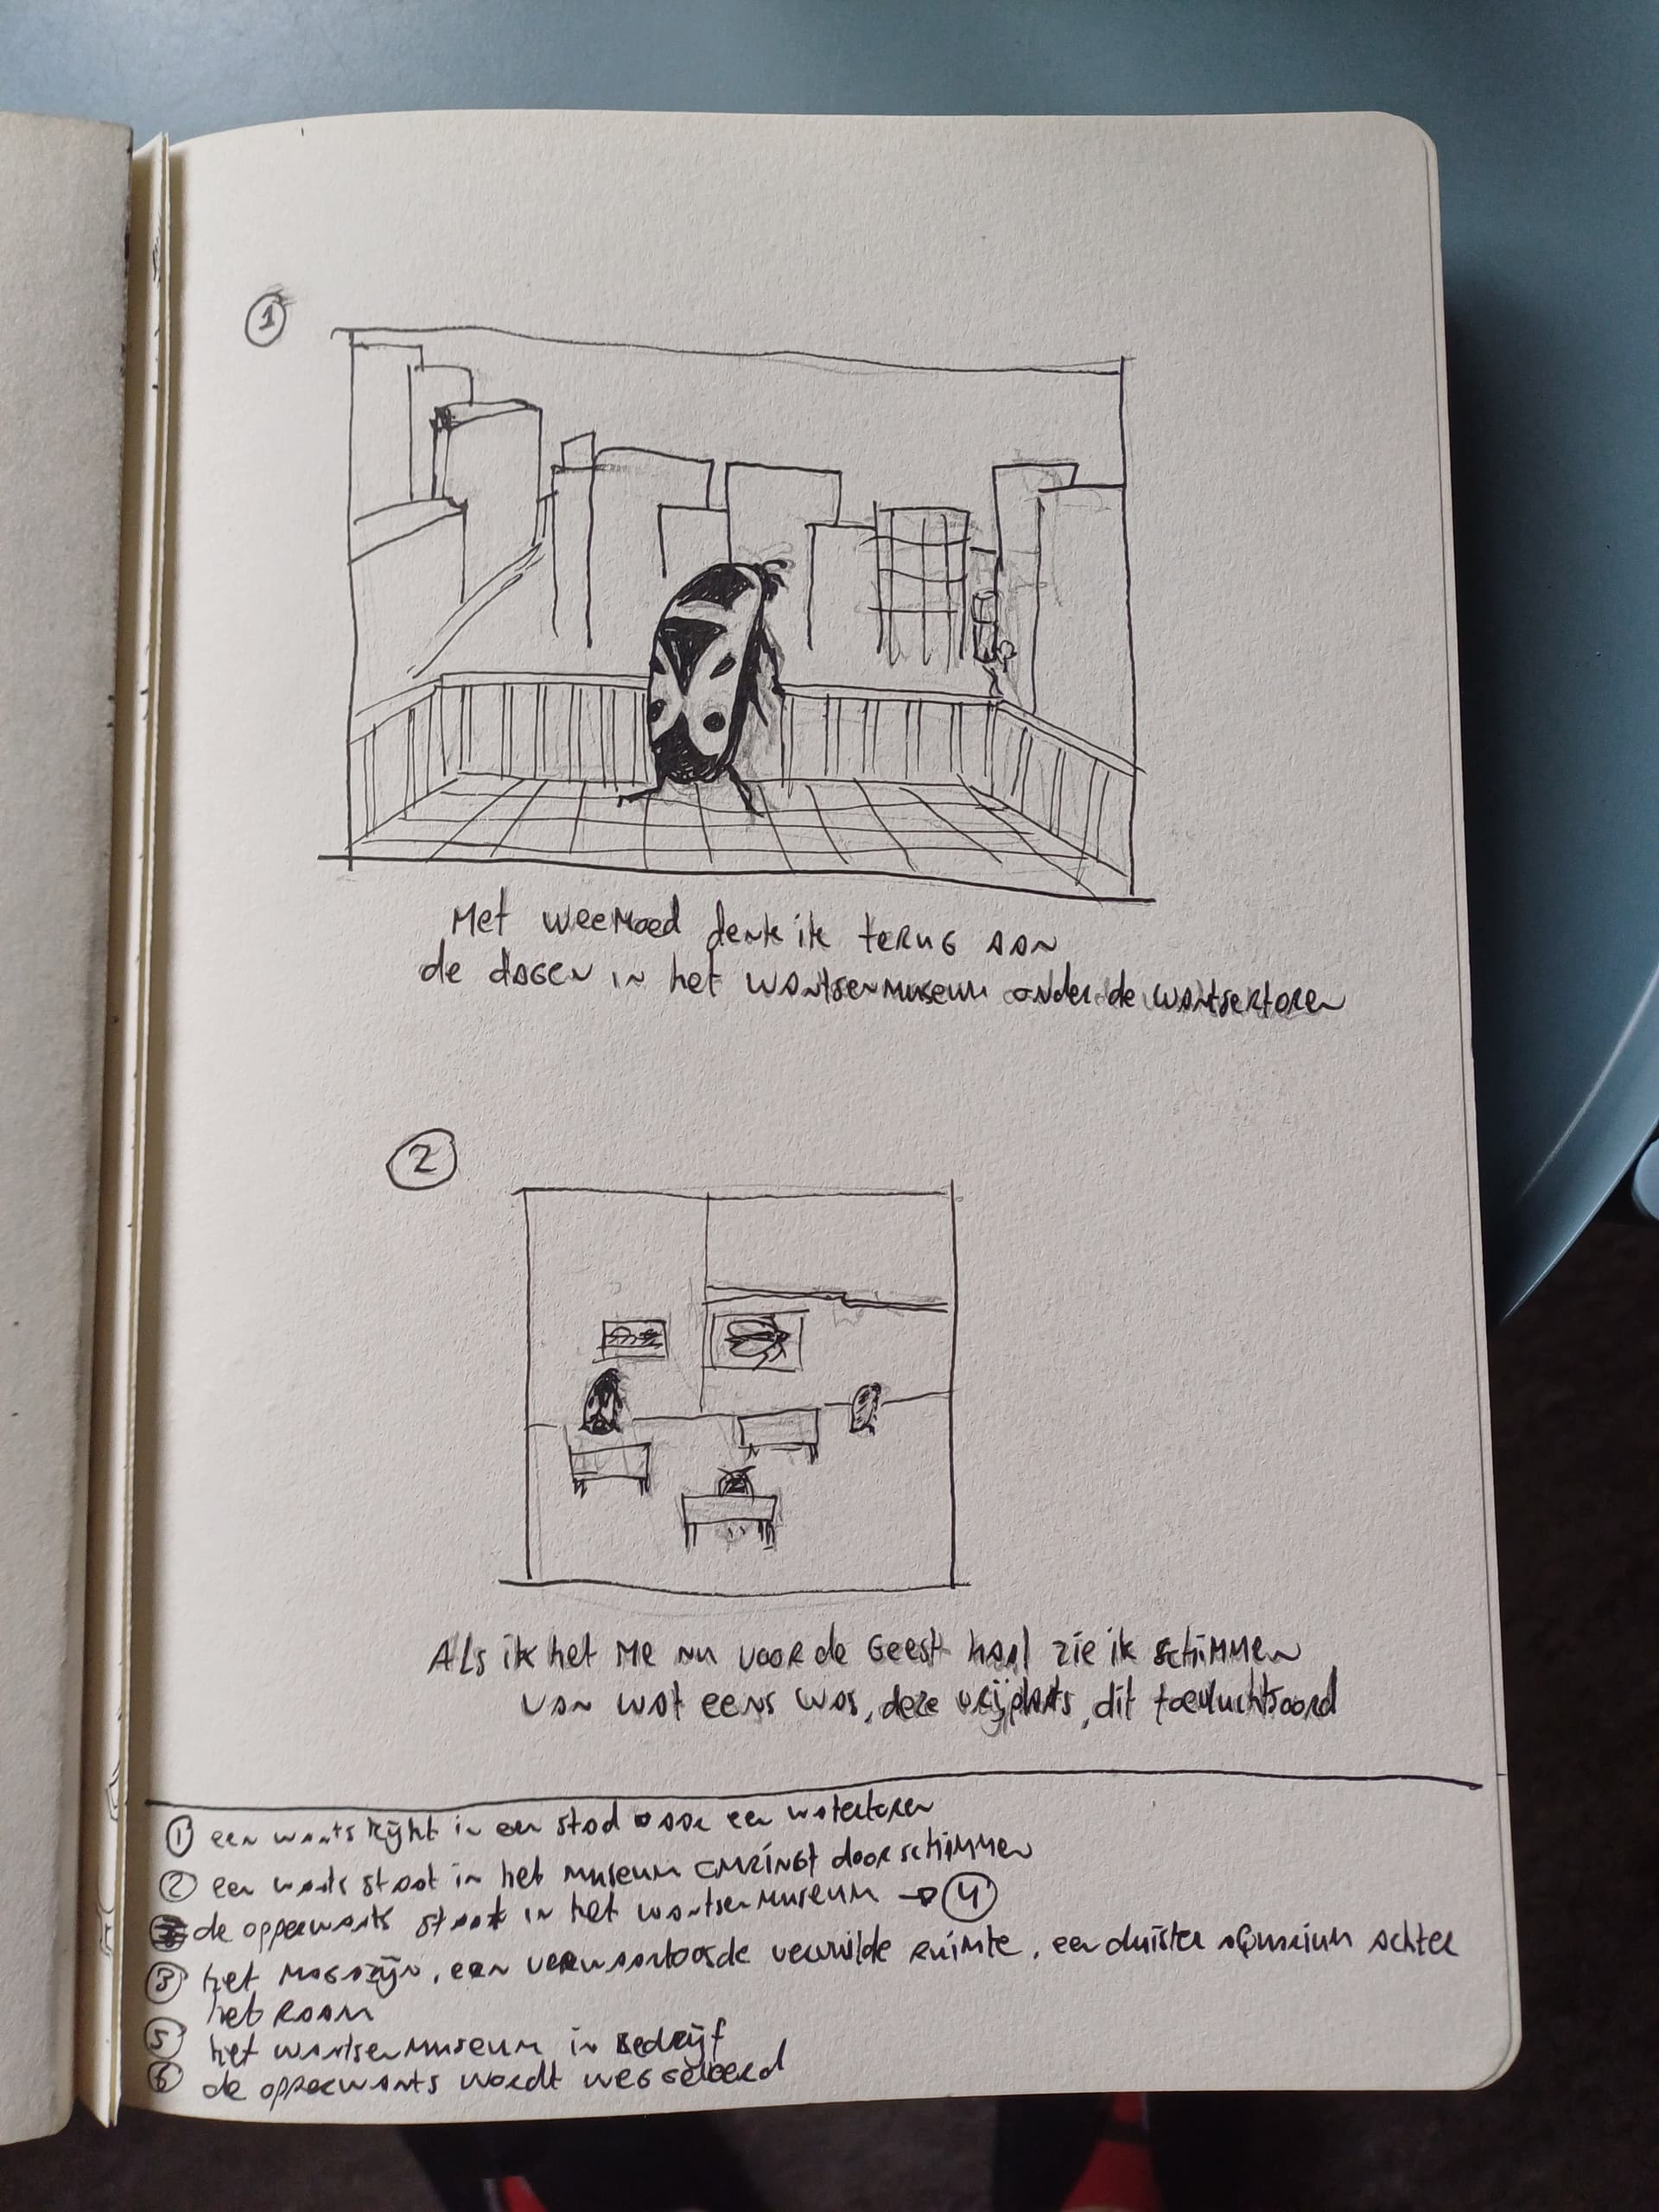 1
Met weemoed denk ik terug aan
de dagen in het wantsenmuseum onder de watertoren
2
Als ik het me nu voor de geest haal zie ik schimmen
van wat eens was, deze vrijplaats, dit toevluchtsoord
1 een wants kijkt in een stad naar een watertoren
2 een wants staat in het museum omringt door schimmen
de opperwants staat in het wantsenmuseum → 4
3 het magazijn, een verwaarloosde verwilde ruimte, een duister aquarium achter
het raam
5 het wantsenmuseum in bedrijf
6 de opperwants wordt weggeleerd